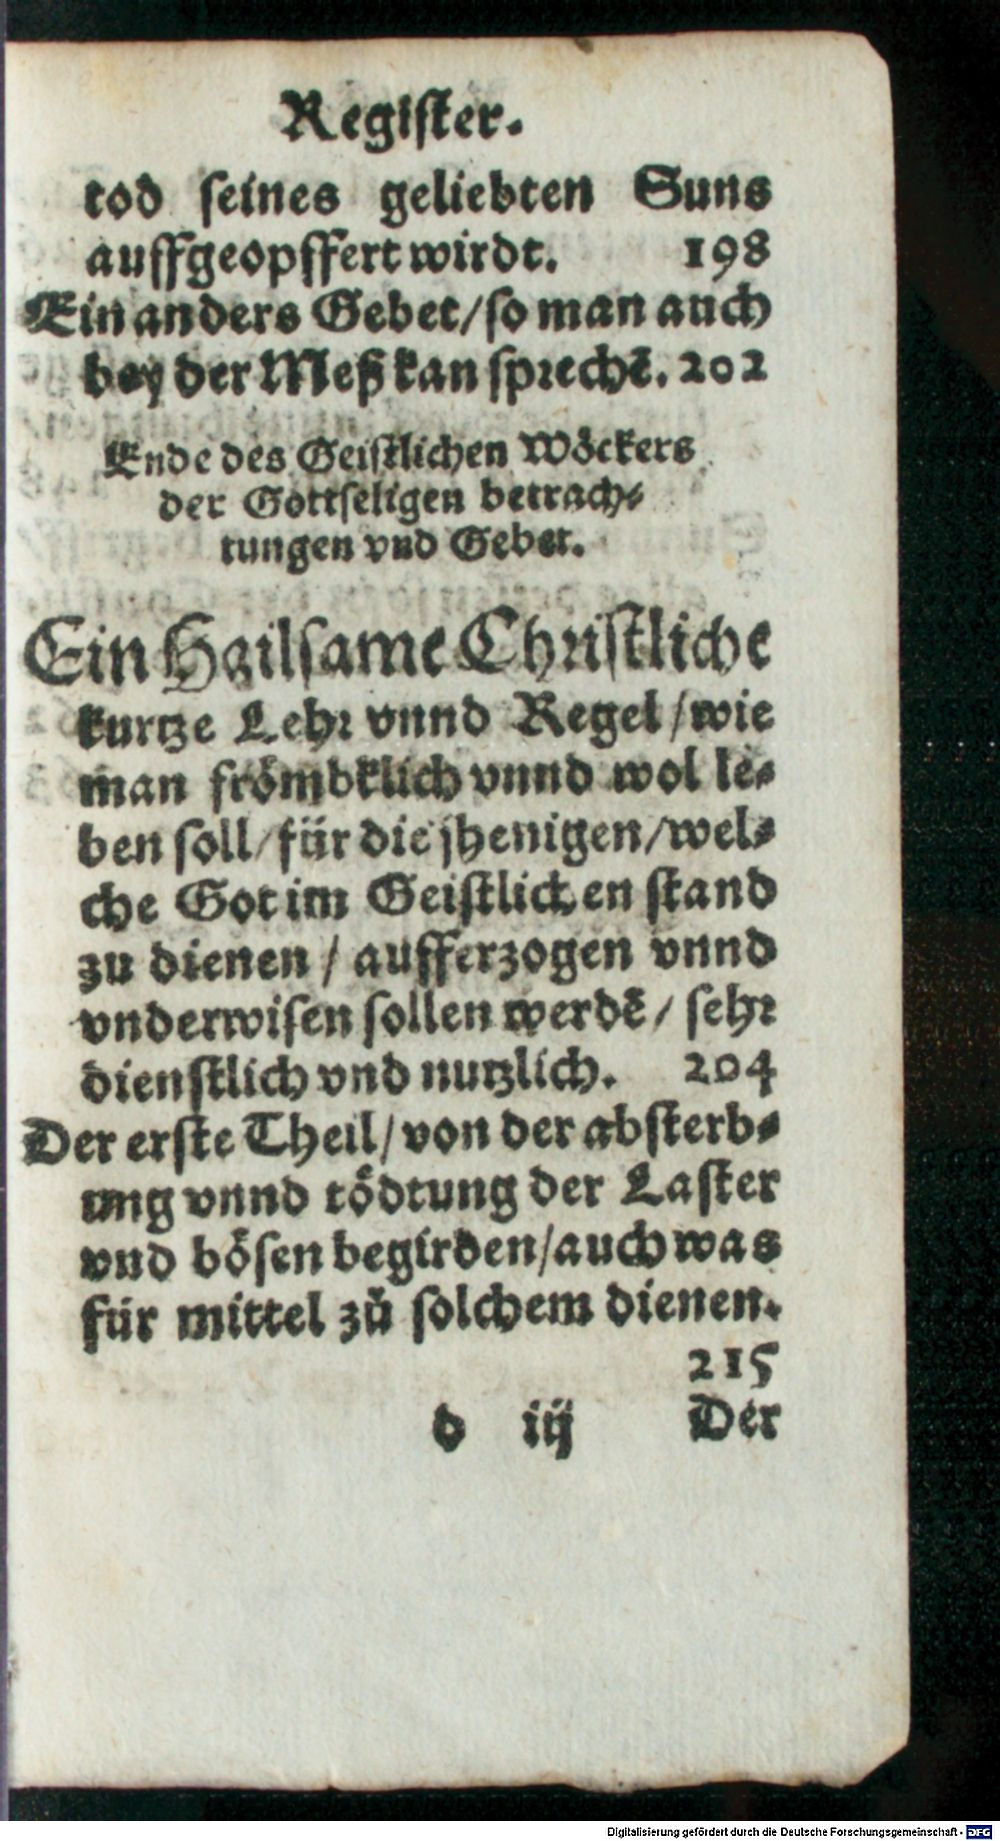 Register.
tod seines geliebten Suns
auffgeopffert wirdt. 198
Ein anders Gebet/so man auch
bey der Meß kan sprechẽ. 202
Ende des Geistlichen Wöckers
der Gottseligen betrach-
tungen vnd Gebet.
Ein Hailsame Christliche
kurtze Lehr vnnd Regel/wie
man frömbklich vnnd wol le-
ben soll/für die jhenigen/wel-
che Got im Geistlichen stand
zu dienen/aufferzogen vnnd
vnderwisen sollen werdẽ/sehr
dienstlich vnd nutzlich. 204
Der erste Theil/von der absterb-
ung vnnd tödtung der Laster
vnd bösen begirden/auch was
für mittel zů solchem dienen.
215
d iij Der
Digitalisierung gefördert durch die Deutsche Forschungsgemeinschaft - DFG